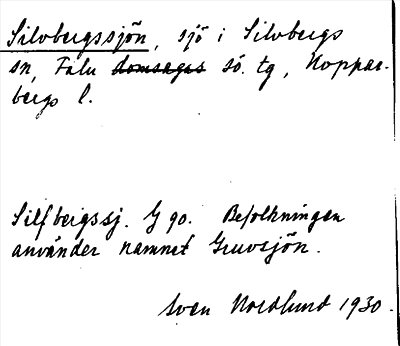 Silvbergssjön, sjö i Silvbergs
sn, Falu domsagas sö. tg, Koppar-
bergs l.
Silfbergssj. G 90. Befolkningen
använder namnet Gruvsjön.
Sven Nordlund 1930.